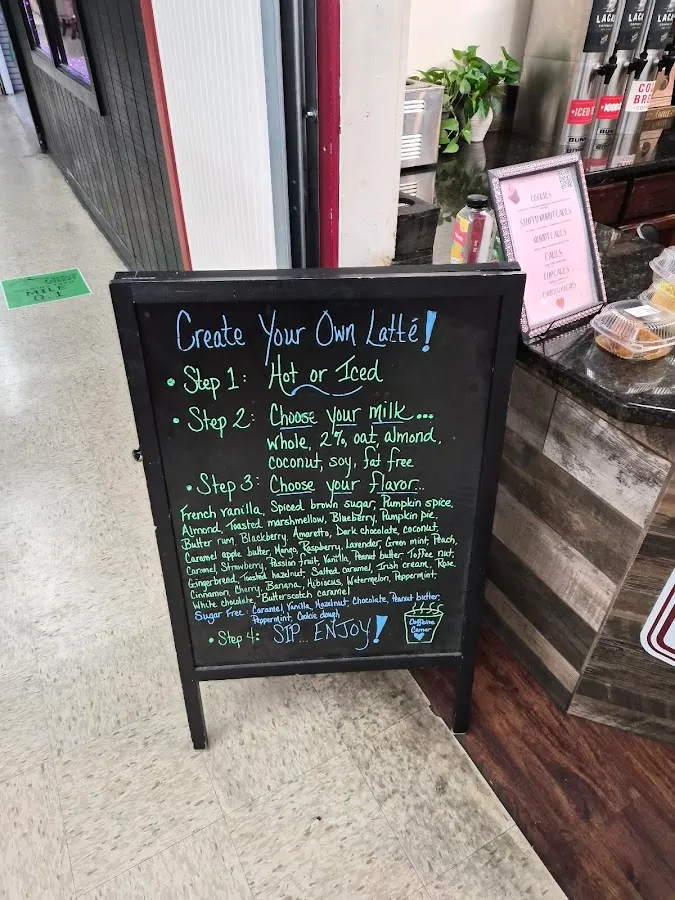 Create Your Own Latté!
• Step 1: Hot or Iced
• Step 2: Choose your milk...
whole, 2%, oat, almond,
coconut, soy, fat free
• Step 3: Choose your flavor...
French vanilla, Spiced brown sugar, Pumpkin spice,
Almond, Toasted marshmallow, Blueberry, Pumpkin pie,
Butter rum, Blackberry, Amaretto, Dark chocolate, coconut,
Caramel apple butter, Mango, Raspberry, Lavender, Green mint, Peach,
Caramel, Strawberry, Passion fruit, Vanilla, Peanut butter, Toffee nut,
Gingerbread, Toasted hazelnut, Salted caramel, Irish cream, Rose,
Cinnamon, Cherry, Banana, Hibiscus, Watermelon, Peppermint,
White chocolate, Butterscotch caramel
Sugar Free: Caramel, Vanilla, Hazelnut, Chocolate, Peanut butter,
Peppermint, Cookie dough
• Step 4: SIP... ENJOY!
Caffeine
Corner
COOKIES
STUFFED BUNDT CAKES
BUNDT CAKES
CAKES
CUPCAKES
MILE
0.1
LACA
LACA
LACA
ICED T
ICED
CO
BR
BUNN